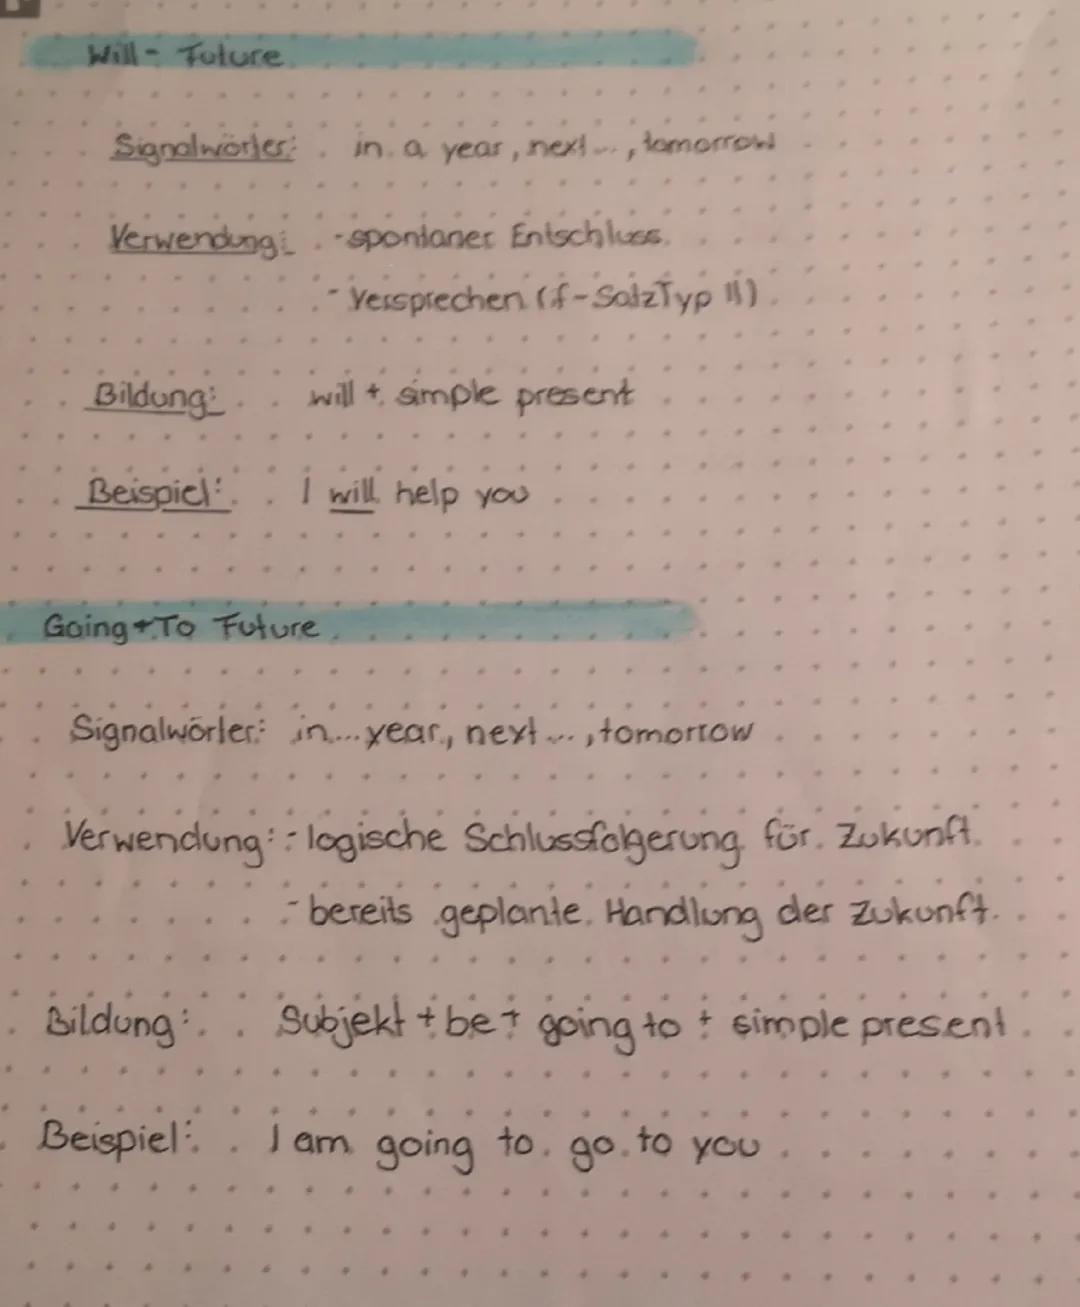 Will - Future
Signalwörter: in a year, next..., tomorrow
Verwendung: -spontaner Entschluss
- Versprechen (if-SatzTyp II)
Bildung: will + simple present
Beispiel: I will help you
Going+To Future
Signalwörter: in...year, next..., tomorrow
Verwendung: - logische Schlussfolgerung für Zukunft.
- bereits geplante Handlung der Zukunft.
Bildung: Subjekt + be + going to + simple present
Beispiel: I am going to go to you